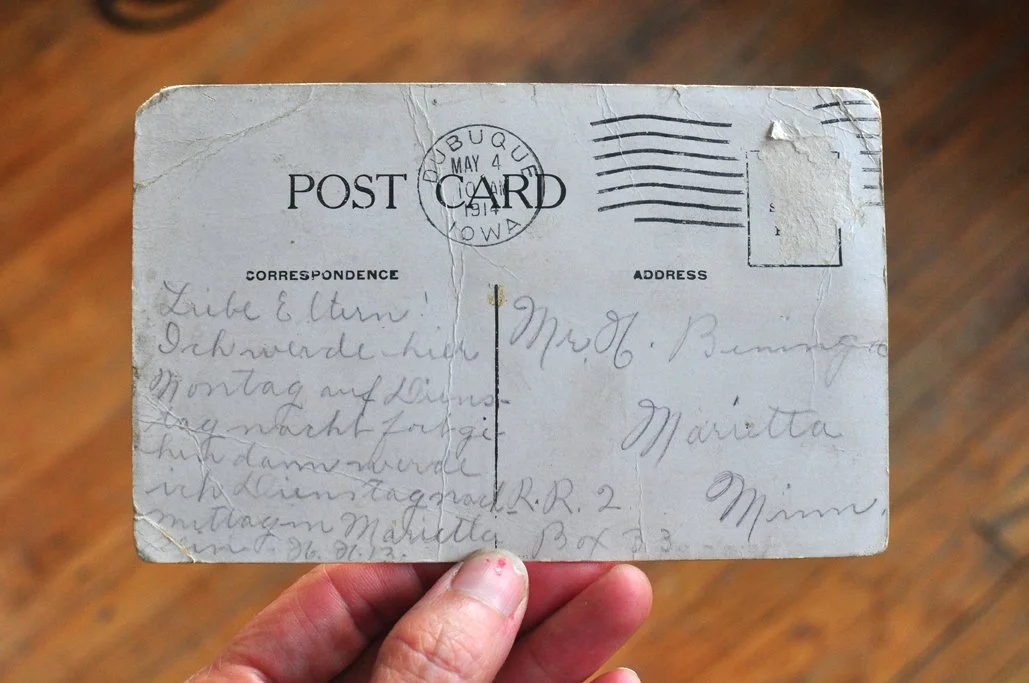 DUBUQUE
MAY 4
10 AM
1914
IOWA
POST CARD
CORRESPONDENCE
ADDRESS
Liebe Eltern!
Ich werde hier
Montag auf Diens-
tag nacht fortge
hen dann werde
ich Dienstag nach
mittag in Marietta
H. H. B.
Mr. H. Beninga
Marietta
Minn.
R. R. 2
Box 33